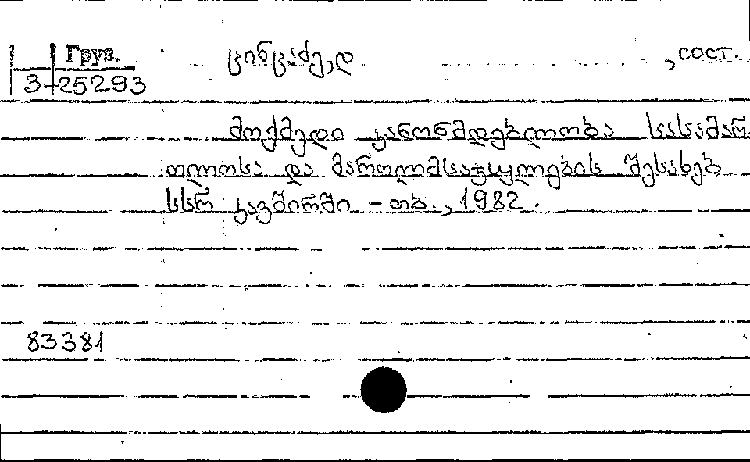 Груз.
3-25293
ცინცაძე, დ , сост.
მოქმედი კანონმდებლობა სასამარ
თლოსა და მართლმსაჯულების შესახებ
სსრ კავშირში - თბ., 1982.
83381